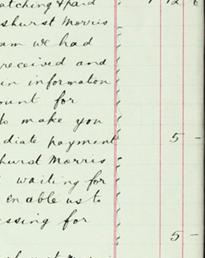 atching & paid 1 12 6
shurst Morris
am we had
received and
in information
ount for
to make you
diate payment 5 -
hurst Morris
waiting for
enable us to
essing for
5 -